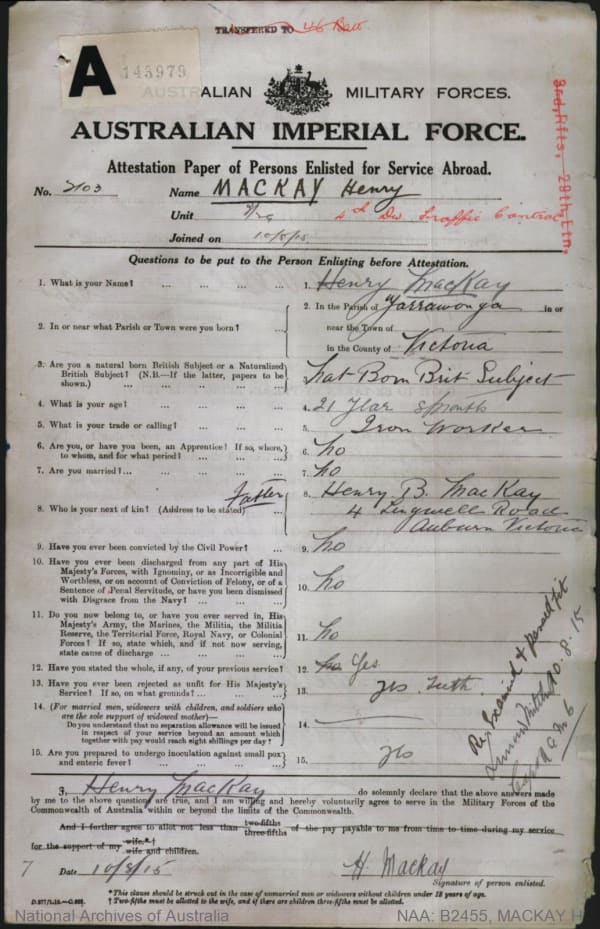 TRANSFERRED TO 46 Batt.
A 143979
AUSTRALIAN MILITARY FORCES.
AUSTRALIAN IMPERIAL FORCE.
3rd Rfts, 29th Btn.
Attestation Paper of Persons Enlisted for Service Abroad.
No. 2103 Name MACKAY Henry
Unit 3/29 4th Div Traffic Control
Joined on 10/8/15
Questions to be put to the Person Enlisting before Attestation.
1. What is your Name? ... ... ... ... 1. Henry MacKay
2. In or near what Parish or Town were you born? ... 2. In the Parish of Yarrawonga in or
near the Town of
in the County of Victoria
3. Are you a natural born British Subject or a Naturalized
British Subject? (N.B.—If the latter, papers to be
shown.) ... ... ... ... ... Nat Born Brit Subject
4. What is your age? ... ... ... ... 4. 21 Year 8 months
5. What is your trade or calling? ... ... ... 5. Iron Worker
6. Are you, or have you been, an Apprentice? If so, where,
to whom, and for what period? ... ... ... 6. No
7. Are you married? ... ... ... ... ... 7. No
8. Who is your next of kin? (Address to be stated) ... Father 8. Henry B. MacKay
4 Lingwell Road
Auburn Victoria
9. Have you ever been convicted by the Civil Power? ... 9. No
10. Have you ever been discharged from any part of His
Majesty's Forces, with Ignominy, or as Incorrigible and
Worthless, or on account of Conviction of Felony, or of a
Sentence of Penal Servitude, or have you been dismissed
with Disgrace from the Navy? ... ... ... 10. No
11. Do you now belong to, or have you ever served in, His
Majesty's Army, the Marines, the Militia, the Militia
Reserve, the Territorial Force, Royal Navy, or Colonial
Forces? If so, state which, and if not now serving,
state cause of discharge ... ... ... ... 11. No
12. Have you stated the whole, if any, of your previous service? 12. No Yes
13. Have you ever been rejected as unfit for His Majesty's
Service? If so, on what grounds? ... ... ... 13. Yes Teeth
14. (For married men, widowers with children, and soldiers who
are the sole support of widowed mother)—
Do you understand that no separation allowance will be issued
in respect of your service beyond an amount which
together with pay would reach eight shillings per day? 14. —
15. Are you prepared to undergo inoculation against small pox
and enteric fever? ... ... ... ... 15. Yes
Re-examined & passed fit
10.8.15
Capt A.A.M.C
I, Henry MacKay do solemnly declare that the above answers made
by me to the above questions are true, and I am willing and hereby voluntarily agree to serve in the Military Forces of the
Commonwealth of Australia within or beyond the limits of the Commonwealth.
And I further agree to allot not less than two-fifths three-fifths of the pay payable to me from time to time during my service
for the support of my wife.*† wife and children.
7 Date 10/8/15 H. Mackay
Signature of person enlisted.
*This clause should be struck out in the case of unmarried men or widowers without children under 18 years of age.
† Two-fifths must be allotted to the wife, and if there are children three-fifths must be allotted.
National Archives of Australia NAA: B2455, MACKAY H